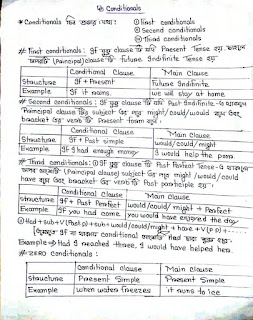 Conditionals
* Conditionals তিন প্রকার যথা: ① First Conditionals
② Second conditionals
③ Third conditionals
* First conditionals: If যুক্ত clause টি যদি Present Tense হয়
(Principal) clause টি future Indefinite Tense হয়
Conditional Clause Main Clause
Structure If + Present Future Indefinite
Example If it rains. we will stay at home
* Second conditionals: If যুক্ত clause টি Past Indefinite
Principal clause টির subject এর পর might/could/would
bracket verb টি Present form
Conditional Clause Main Clause
Structure If + Past simple would/could/might
Example If I had enough money I would help the poor.
* Third conditionals: ① If যুক্ত clause টি Past Perfect Tense
(Principal clause) subject এর পর might/would/could
have bracket এর verb টি Past participle হয়
Conditional Clause Main Clause
Structure If + Past Perfect would/could/might + Perfect
Example If you had come you would have enjoyed the day
② Had + sub + V(past p) + sub + would/could/might + have + V(p p) + ---
If conditional Had
Example → Had I reached there, I would have helped her.
* Zero Conditionals:
Conditional Clause Main Clause
Structure Present Simple Present Simple
Example when water freezes it turns to ice